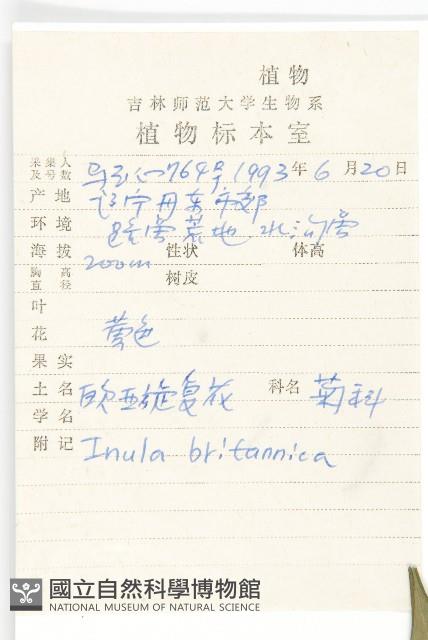 植物
吉林师范大学生物系
植物标本室
采集人及号数 764号 1993年6月20日
产地 辽宁丹东市郊
环境 路旁荒地、水沟旁
海拔 200m 性状 体高
胸高直径 树皮
叶
花 黄色
果实
土名 欧亚旋复花 科名 菊科
学名
附记 Inula britannica
國立自然科學博物館
NATIONAL MUSEUM OF NATURAL SCIENCE